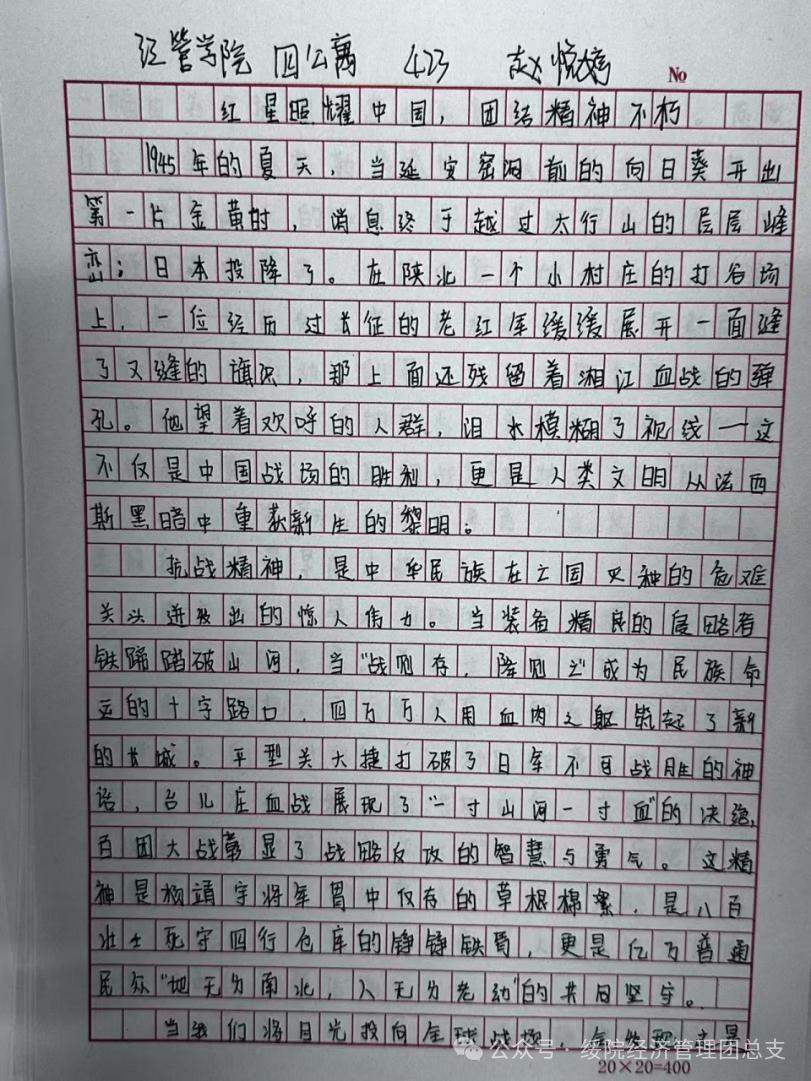 经管学院 四公寓 423 赵悦婷
No
红星照耀中国，团结精神不朽
1945年的夏天，当延安窑洞前的向日葵开出
第一片金黄时，消息终于越过太行山的层层峰
峦：日本投降了。在陕北一个小村庄的打谷场
上，一位经历过长征的老红军缓缓展开一面缝
了又缝的旗帜，那上面还残留着湘江血战的弹
孔。他望着欢呼的人群，泪水模糊了视线——这
不仅是中国战场的胜利，更是人类文明从法西
斯黑暗中重获新生的黎明。
抗战精神，是中华民族在亡国灭种的危难
关头迸发出的惊人伟力。当装备精良的侵略者
铁蹄踏破山河，当"战则存，降则亡"成为民族命
运的十字路口，四万万人用血肉之躯筑起了新
的长城。平型关大捷打破了日军不可战胜的神
话，台儿庄血战展现了"一寸山河一寸血"的决绝，
百团大战彰显了战略反攻的智慧与勇气。这精
神是杨靖宇将军胃中仅存的草根棉絮，是八百
壮士死守四行仓库的铮铮铁骨，更是亿万普通
民众"地无分南北，人无分老幼"的共同坚守。
当我们将目光投向全球战场，
公众号·绥院经济管理团总支
20×20=400